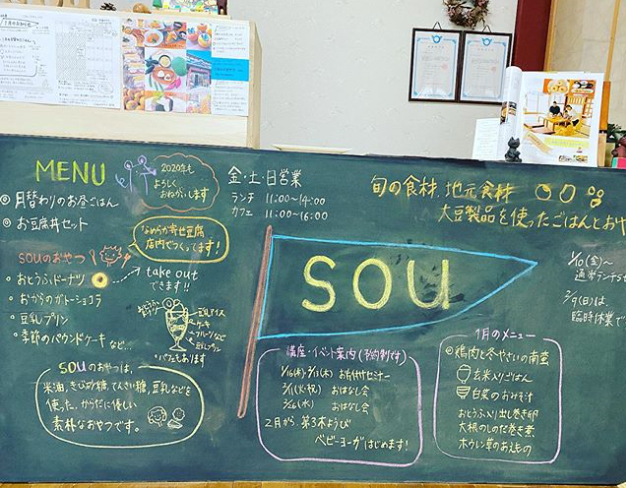 MENU
◎ 月替わりのお昼ごはん
◎ お豆腐丼セット
2020年も
よろしく
おねがいします
金・土・日営業
ランチ 11:00〜14:00
カフェ 11:00〜16:00
旬の食材、地元食材
大豆製品を使ったごはんとおや
なめらか寄せ豆腐
店内でつくってます!
SOUのおやつ
・おとうふドーナツ
take out
できます!!
・おからのガトーショコラ
・豆乳プリン
・季節のパウンドケーキ など...
豆乳アイス
ケーキ
フルーツなど
豆乳プリン
・パフェもあります
SOUのおやつは、
米油、きび砂糖、てんさい糖、豆乳などを
使った、からだに優しい
素朴なおやつです。
SOU
1/10(金)〜
通常ランチst
2/9(日)は、
臨時休業で
講座・イベント案内(予約制です)
2/11(火・祝) おはなし会
2/26(水) おはなし会
2月から、第3木ようび
ベビーヨーガはじめます!
1月のメニュー
◎ 鶏肉と冬やさいの南蛮
玄米入りごはん
白菜のおみそ汁
おとうふ入り出し巻き卵
大根のしのだ巻き煮
ホウレン草のあえもの